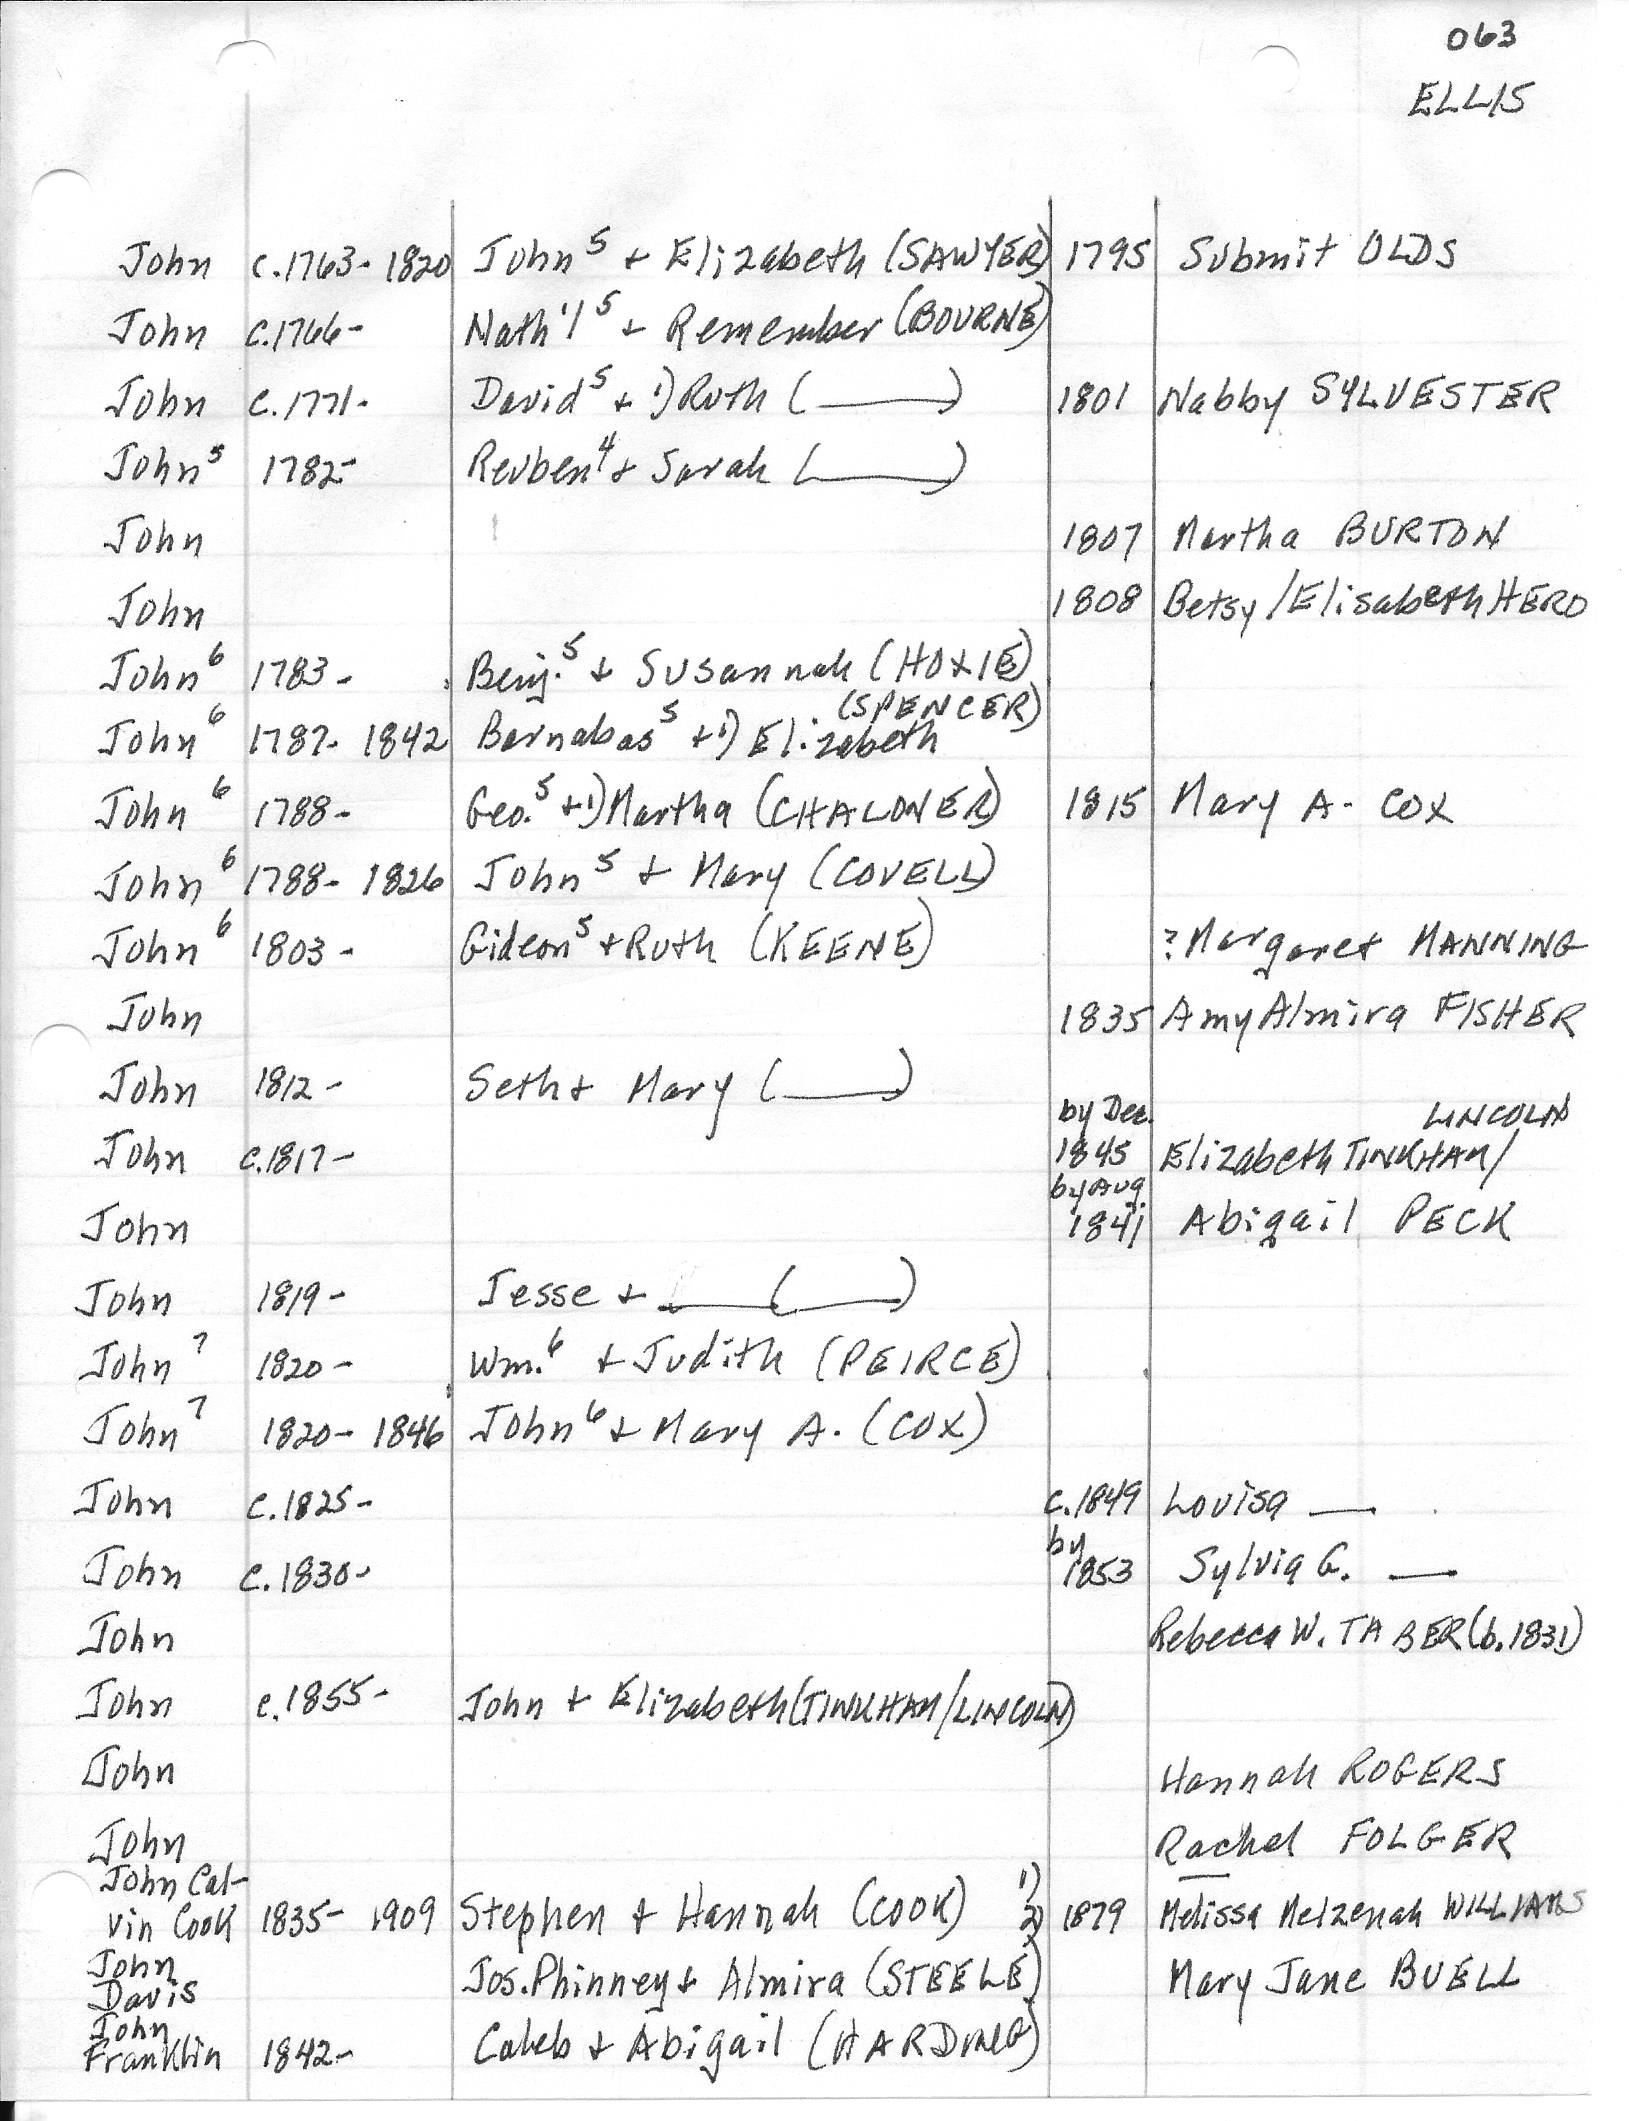 063
ELLIS
John c.1763-1820 John⁵ + Elizabeth (SAWYER) 1795 Submit OLDS
John c.1766- Nath'l⁵ + Remember (BOURNE)
John c.1771- David⁵ + 1) Ruth (____) 1801 Nabby SYLVESTER
John⁵ 1782- Reuben⁴ + Sarah (____)
John 1807 Martha BURTON
John 1808 Betsy/Elisabeth HERD
John⁶ 1783- Benj.⁵ + Susannah (HOXIE)
(SPENCER)
John⁶ 1787-1842 Barnabas⁵ + 1) Elizabeth
John⁶ 1788- Geo.⁵ + 1) Martha (CHALONER) 1815 Mary A. COX
John⁶ 1788-1826 John⁵ + Mary (COVELL)
John⁶ 1803- Gideon⁵ + Ruth (KEENE) ? Margaret MANNING
John 1835 Amy Almira FISHER
John 1812- Seth + Mary (____)
by Dec. LINCOLN
John c.1817- 1845 Elizabeth TINKHAM/
by Aug.
John 1841 Abigail PECK
John 1819- Jesse + ____ (____)
John⁷ 1820- Wm.⁶ + Judith (PEIRCE)
John⁷ 1820-1846 John⁶ + Mary A. (COX)
John c.1825- c.1849 Louisa __
by
John c.1830- 1853 Sylvia G. __
John Rebecca W. TABER (b.1831)
John c.1855- John + Elizabeth (TINKHAM/LINCOLN)
John Hannah ROGERS
John Rachel FOLGER
John Cal- 1)
vin Cook 1835-1909 Stephen + Hannah (COOK) 2) 1879 Melissa Melzenah WILLIAMS
John
Davis Jos. Phinney + Almira (STEELE) Mary Jane BUELL
John
Franklin 1842- Caleb + Abigail (HARDING)